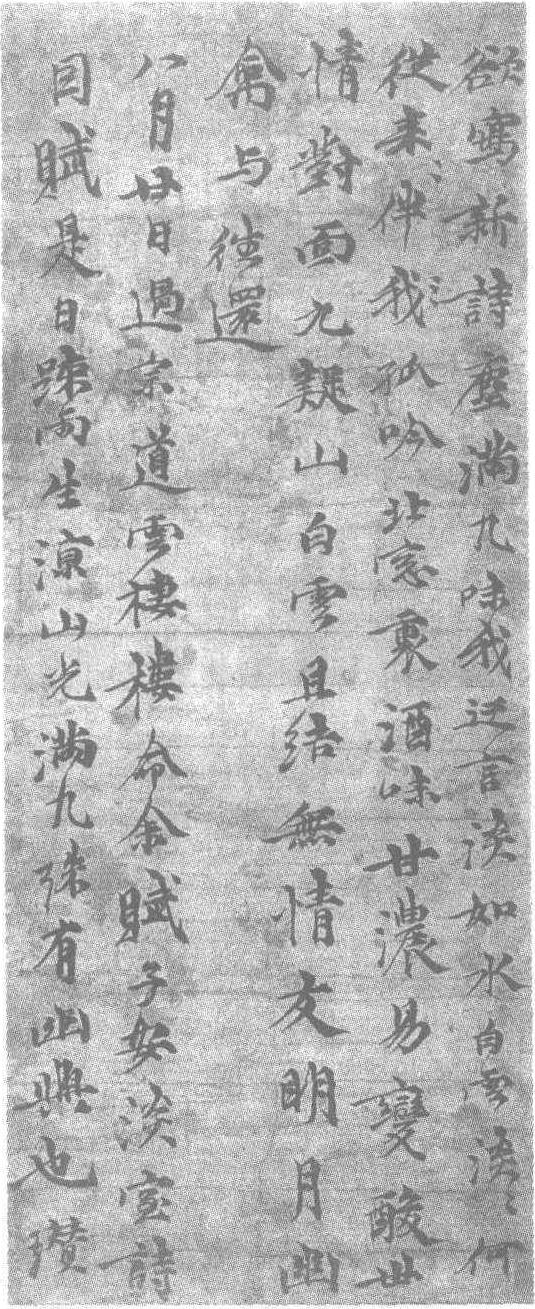 欲寫新詩塵滿几味我迂言淡如水白雲淡〻何
従来伴我孤吟北窓裏酒味甘濃易變酸世
情對面九疑山白雲且結無情友明月幽
禽与往還
八月廿日過宗道雲棲樓命余賦子安淡室詩
因賦是日踈雨生凉山光滿几殊有幽興也瓚